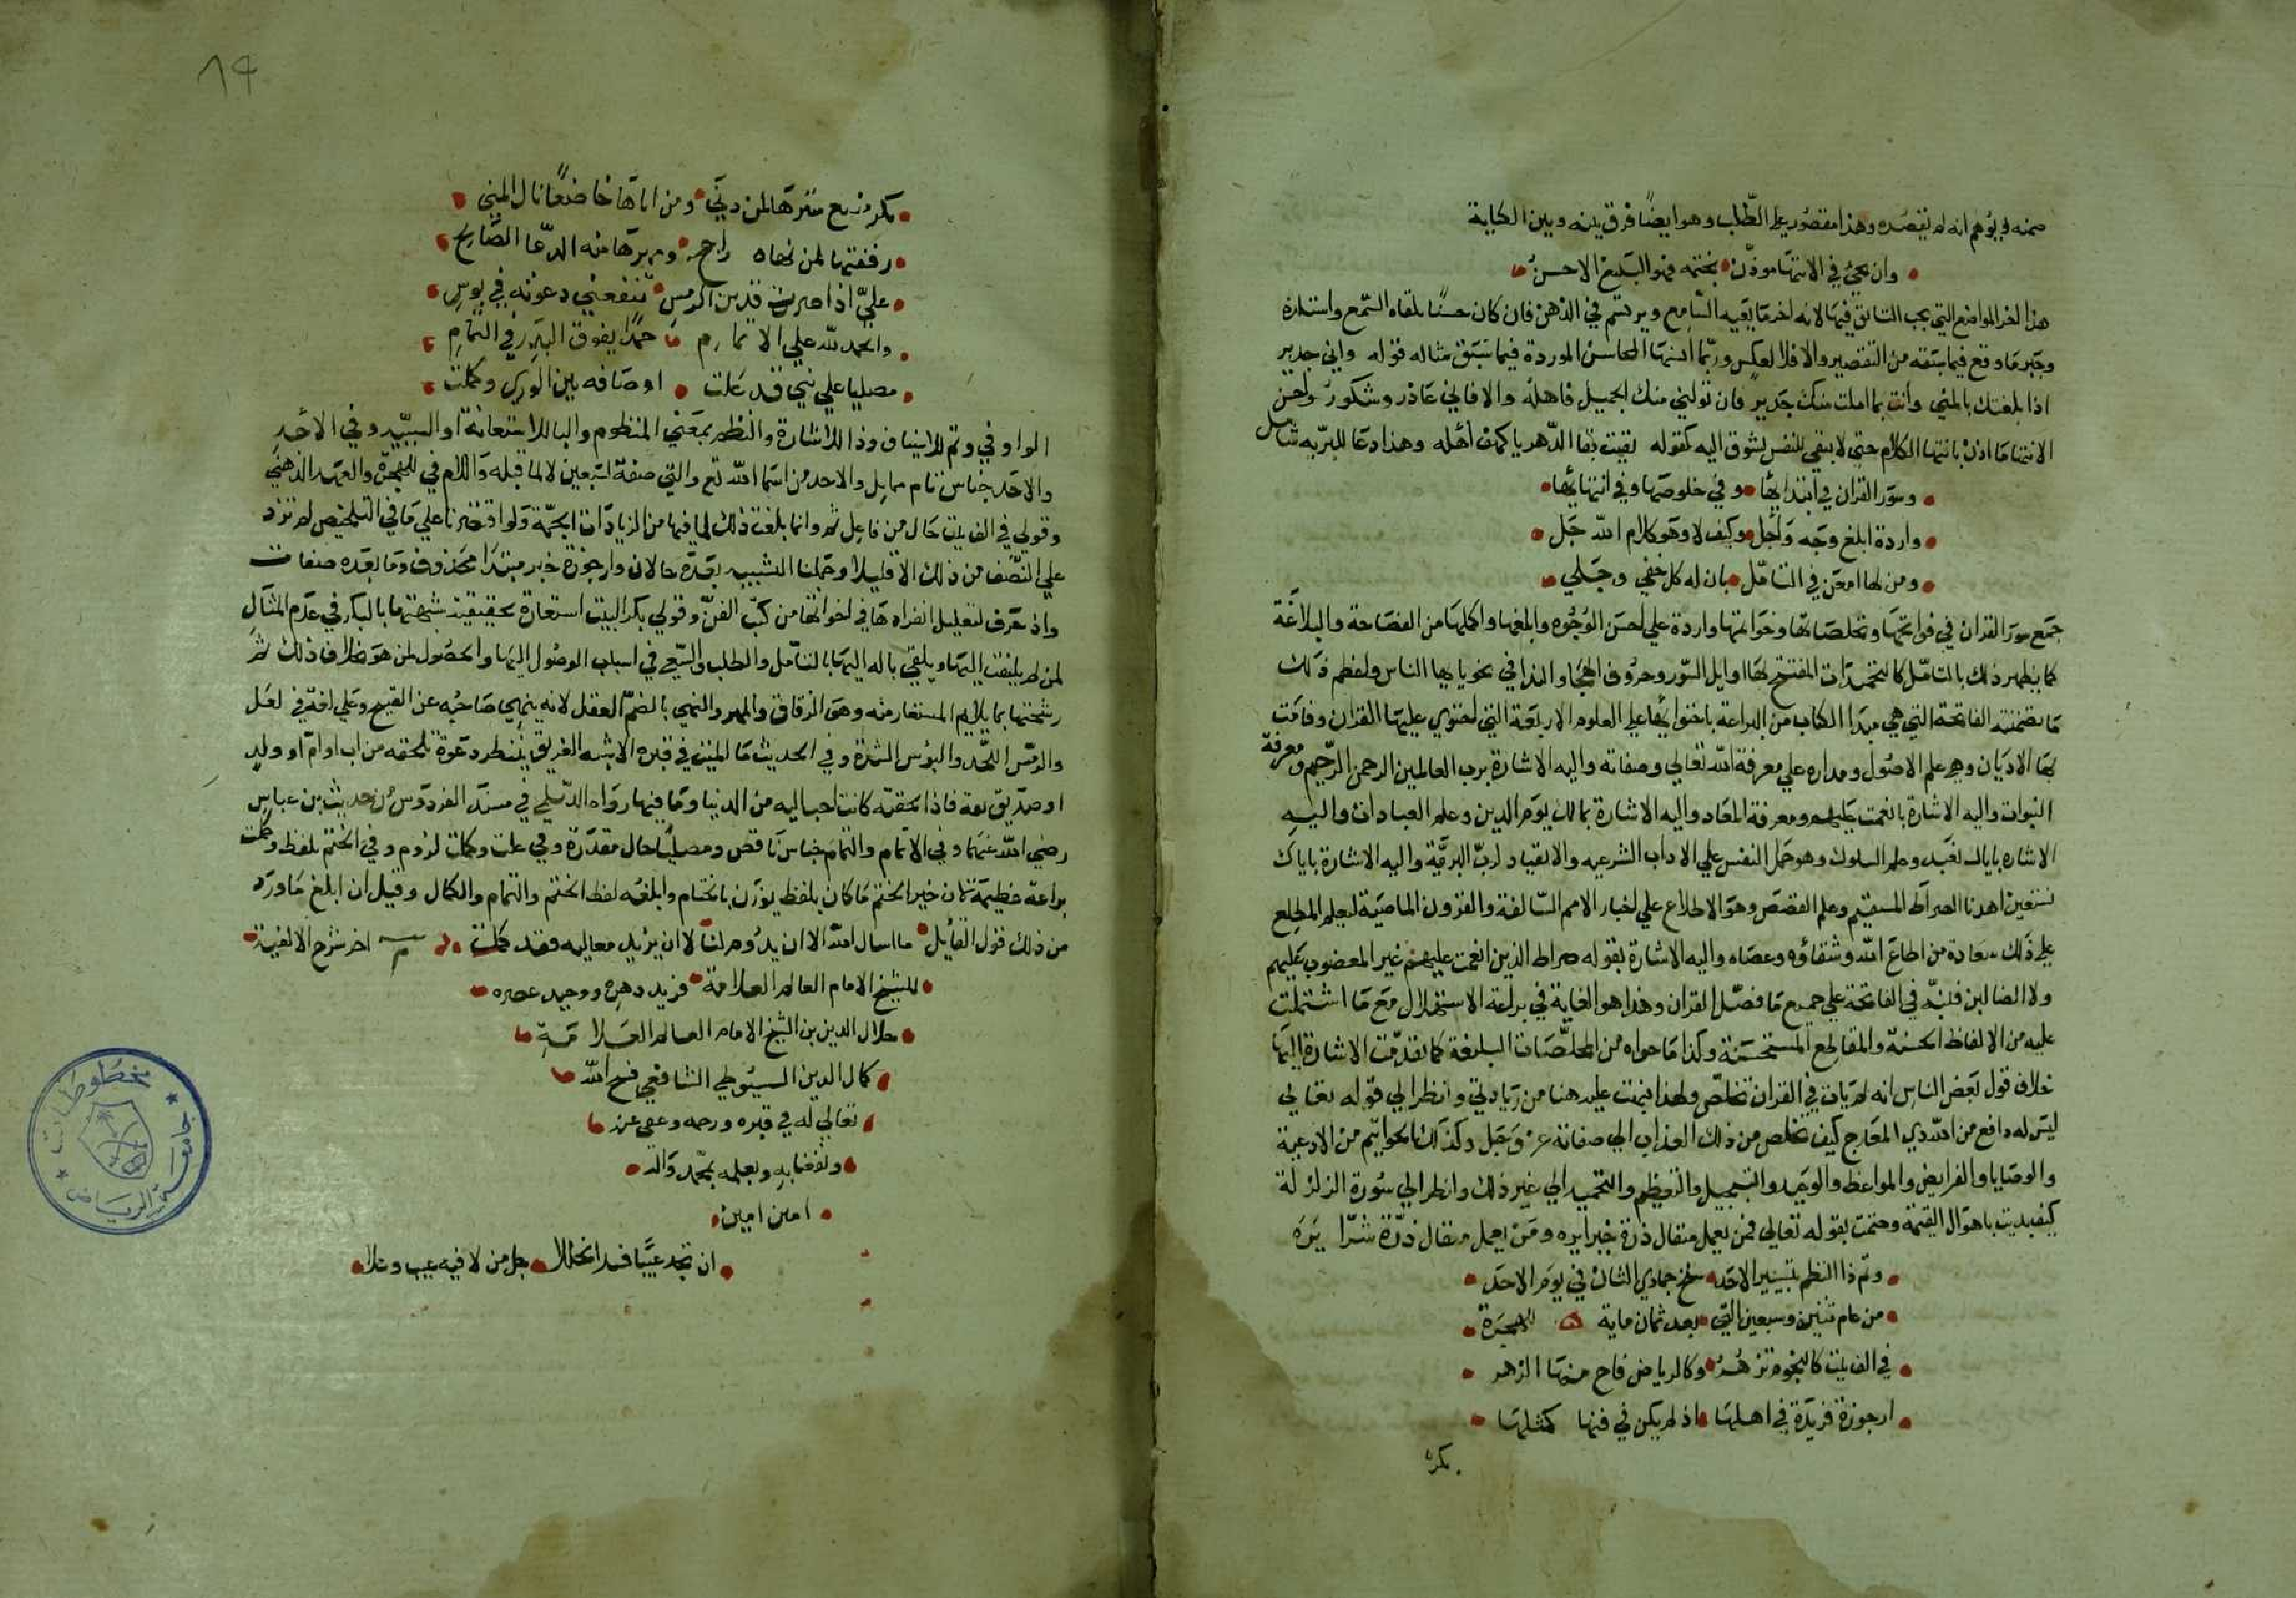 ضمنه ويوهم انه لم يقصده وهذا مقصود علي الطلب وهو ايضًا فرق بينه وبين الكناية
وان يجئ في الانتها موذن بختمه فهو البليغ الاحسن
هذا اخر المواضع التي يجب التانق فيها لانه اخر ما يعيه السامع ويرتسم في الذهن فان كان حسنًا تلقاه السمع واستلذه
وجبر ما وقع فيما سبقه من التقصير والا فلا لعكس وربما انسها المحاسن الموردة فيما سبق مثاله قوله واني جدير
اذا بلغتك بالمني وأنت بما املت منك جدير فان تولني منك الجميل فاهله والا فاني عاذر وشكور واحسن
الانتها ما اذن بانتها الكلام حتي لا يبقي للنفس تشوق اليه كقوله بقيت بقا الدهر يا كهف أهله وهذا دعا للبرية شامل
وسور القران في ابتدائها وفي خلوصها وفي انتهائها
واردة ابلغ وجه وأجل وكيف لا وهو كلام الله جل
ومن لها امعن في التامل بان له كل خفي وجلي
جمع سور القران في فواتحها وتخلصاتها وخواتمها واردة علي احسن الوجوه وابلغها واكملها من الفصاحة والبلاغة
كما يظهر ذلك بالتامل كالتحميدات المفتتح بها اوايل السور وحروف الهجا والندا في نحو يا ايها الناس ولنظم ذلك
ما تضمنته الفاتحة التي هي مبدا الكتاب من البراعة باحتوائها علي العلوم الاربعة التي احتوي عليها القران وقامت
بها الاديان وهي علم الاصول ومداره علي معرفة الله تعالي وصفاته واليه الاشارة برب العالمين الرحمن الرحيم ومعرفة
النبوات واليه الاشارة بانعمت عليهم ومعرفة المعاد واليه الاشارة بمالك يوم الدين وعلم العبادات واليه
الاشاره باياك نعبد وعلم السلوك وهو حمل النفس علي الاداب الشرعيه والانقياد لرب البرية واليه الاشارة باياك
نستعين اهدنا الصراط المستقيم وعلم القصص وهو الاطلاع علي اخبار الامم السالفة والقرون الماضية ليعلم المطلع
علي ذلك سعادة من اطاع الله وشقاوة وعصاه واليه الاشارة بقوله صراط الذين انعمت عليهم غير المغضوب عليهم
ولا الضالين فنبه في الفاتحة علي جميع ما فصل القران وهذا هو الغاية في براعة الاستهلال مع ما اشتملت
عليه من الالفاظ الحسنة والمقاطع المستحسنة وكذا ما حواه من المخلصات البليغة كما تقدمت الاشارة اليها
خلاف قول بعض الناس انه لم يات في القران تخلص ولهذا نبهت عليه هنا من زيادتي وانظر الي قوله تعالي
ليس له دافع من الله ذي المعارج كيف تخلص من ذلك العذاب الي صفاته عز وجل وكذلك الخواتيم من الادعية
والوصايا والفرايض والمواعظ والوعيد والتبجيل والتعظيم والتحميد الي غير ذلك وانظر الي سورة الزلزلة
كيف بديت باهوال القيمة وختمت بقوله تعالي فمن يعمل مثقال ذرة خيرا يره ومن يعمل مثقال ذرة شرا يره
وتم ذا النظم بتيسير الاحد سلخ جمادي الثان في يوم الاحد
من عام ثنين وسبعين التي بعد ثمان ماية للهجرة
في الف بيت كالنجوم تزهر وكالرياض فاح منها الزهر
ارجوزة فريدة في اهلها اذ لم يكن في فنها كمثلها
بكر
بكر منيع سترها لمن دني ومن اتاها خاضعًا نال المني
زففتها لمن نهاه راجح ومهرها منه الدعا الصالح
علي اذا صرت قرين الرمس تنفعني دعوته في بوس
والحمد لله علي الاتمام حمدًا يفوق البدر في التمام
مصليا علي نبي قد علت اوصافه بين الوري وكملت
الواو في وتم للاستيناف وذا للاشارة والنظم بمعني المنظوم والبا للاستعانة او السببية وفي الاحد
والاحد جناس تام مماثل والاحد من اسما الله تع والتي صفة لسبعين لا لما قبله واللام في للهجرة والعهد الذهني
وقولي في الف بيت حال من فاعل تم وانما بلغت ذلك لما فيها من الزيادات الجمة ولو اقتصرنا علي ما في التلخيص لم تزد
علي النصف من ذلك الا قليلا وجملتا التشبيه بعده حالان وارجوزة خبر مبتدا محذوف وما بعده صفات
واذ حرف لتعليل انفرادها في اخواتها من كتب الفن وقولي بكر البيت استعارة تحقيقية شبهتها بالبكر في عدم المثال
لمن لم يلتفت اليها ويلقي باله اليها بالتامل والطلب والسعي في اسباب الوصول اليها والحصول لمن هو بخلاف ذلك ثم
رشحتها بما يلايم المستعار منه وهو الزفاف والمهر والنهي بالضم العقل لانه ينهي صاحبه عن القبيح وعلي لغة في لعل
والرمس اللحد والبؤس الشدة وفي الحديث ما الميت في قبره الا شبه الغريق ينتظر دعوة تلحقه من اب او ام او ولد
او صديق ثقة فاذا لحقته كانت احب اليه من الدنيا وما فيها رواه الديلمي في مسند الفردوس من حديث بن عباس
رضي الله عنهما وفي الاتمام والتمام جناس ناقص ومصليًا حال مقدرة وفي علت وكملت لزوم وفي الختم بلفظ وكملت
براعة عظيمة فان خير الختم ما كان بلفظ يوذن بالختام وابلغه لفظ الختم والتمام والكمال وقيل ان ابلغ ما ورد
من ذلك قول القائل ما اسال الله الا ان يدوم لنا لا ان يزيد معاليه فقد كملت تم اخر شرح الالفية
للشيخ الامام العالم العلامة فريد دهره ووحيد عصره
جلال الدين بن الشيخ الامام العالم العلامة
كمال الدين السيوطي الشافعي فسح الله
تعالي له في قبره ورحمه وعفي عنه
ونفعنا به وبعلمه بمحمد واله
امين امين
ان تجد عيبًا فسد الخللا جل من لا فيه عيب وعلا
مخطوطات
جامعة الرياض